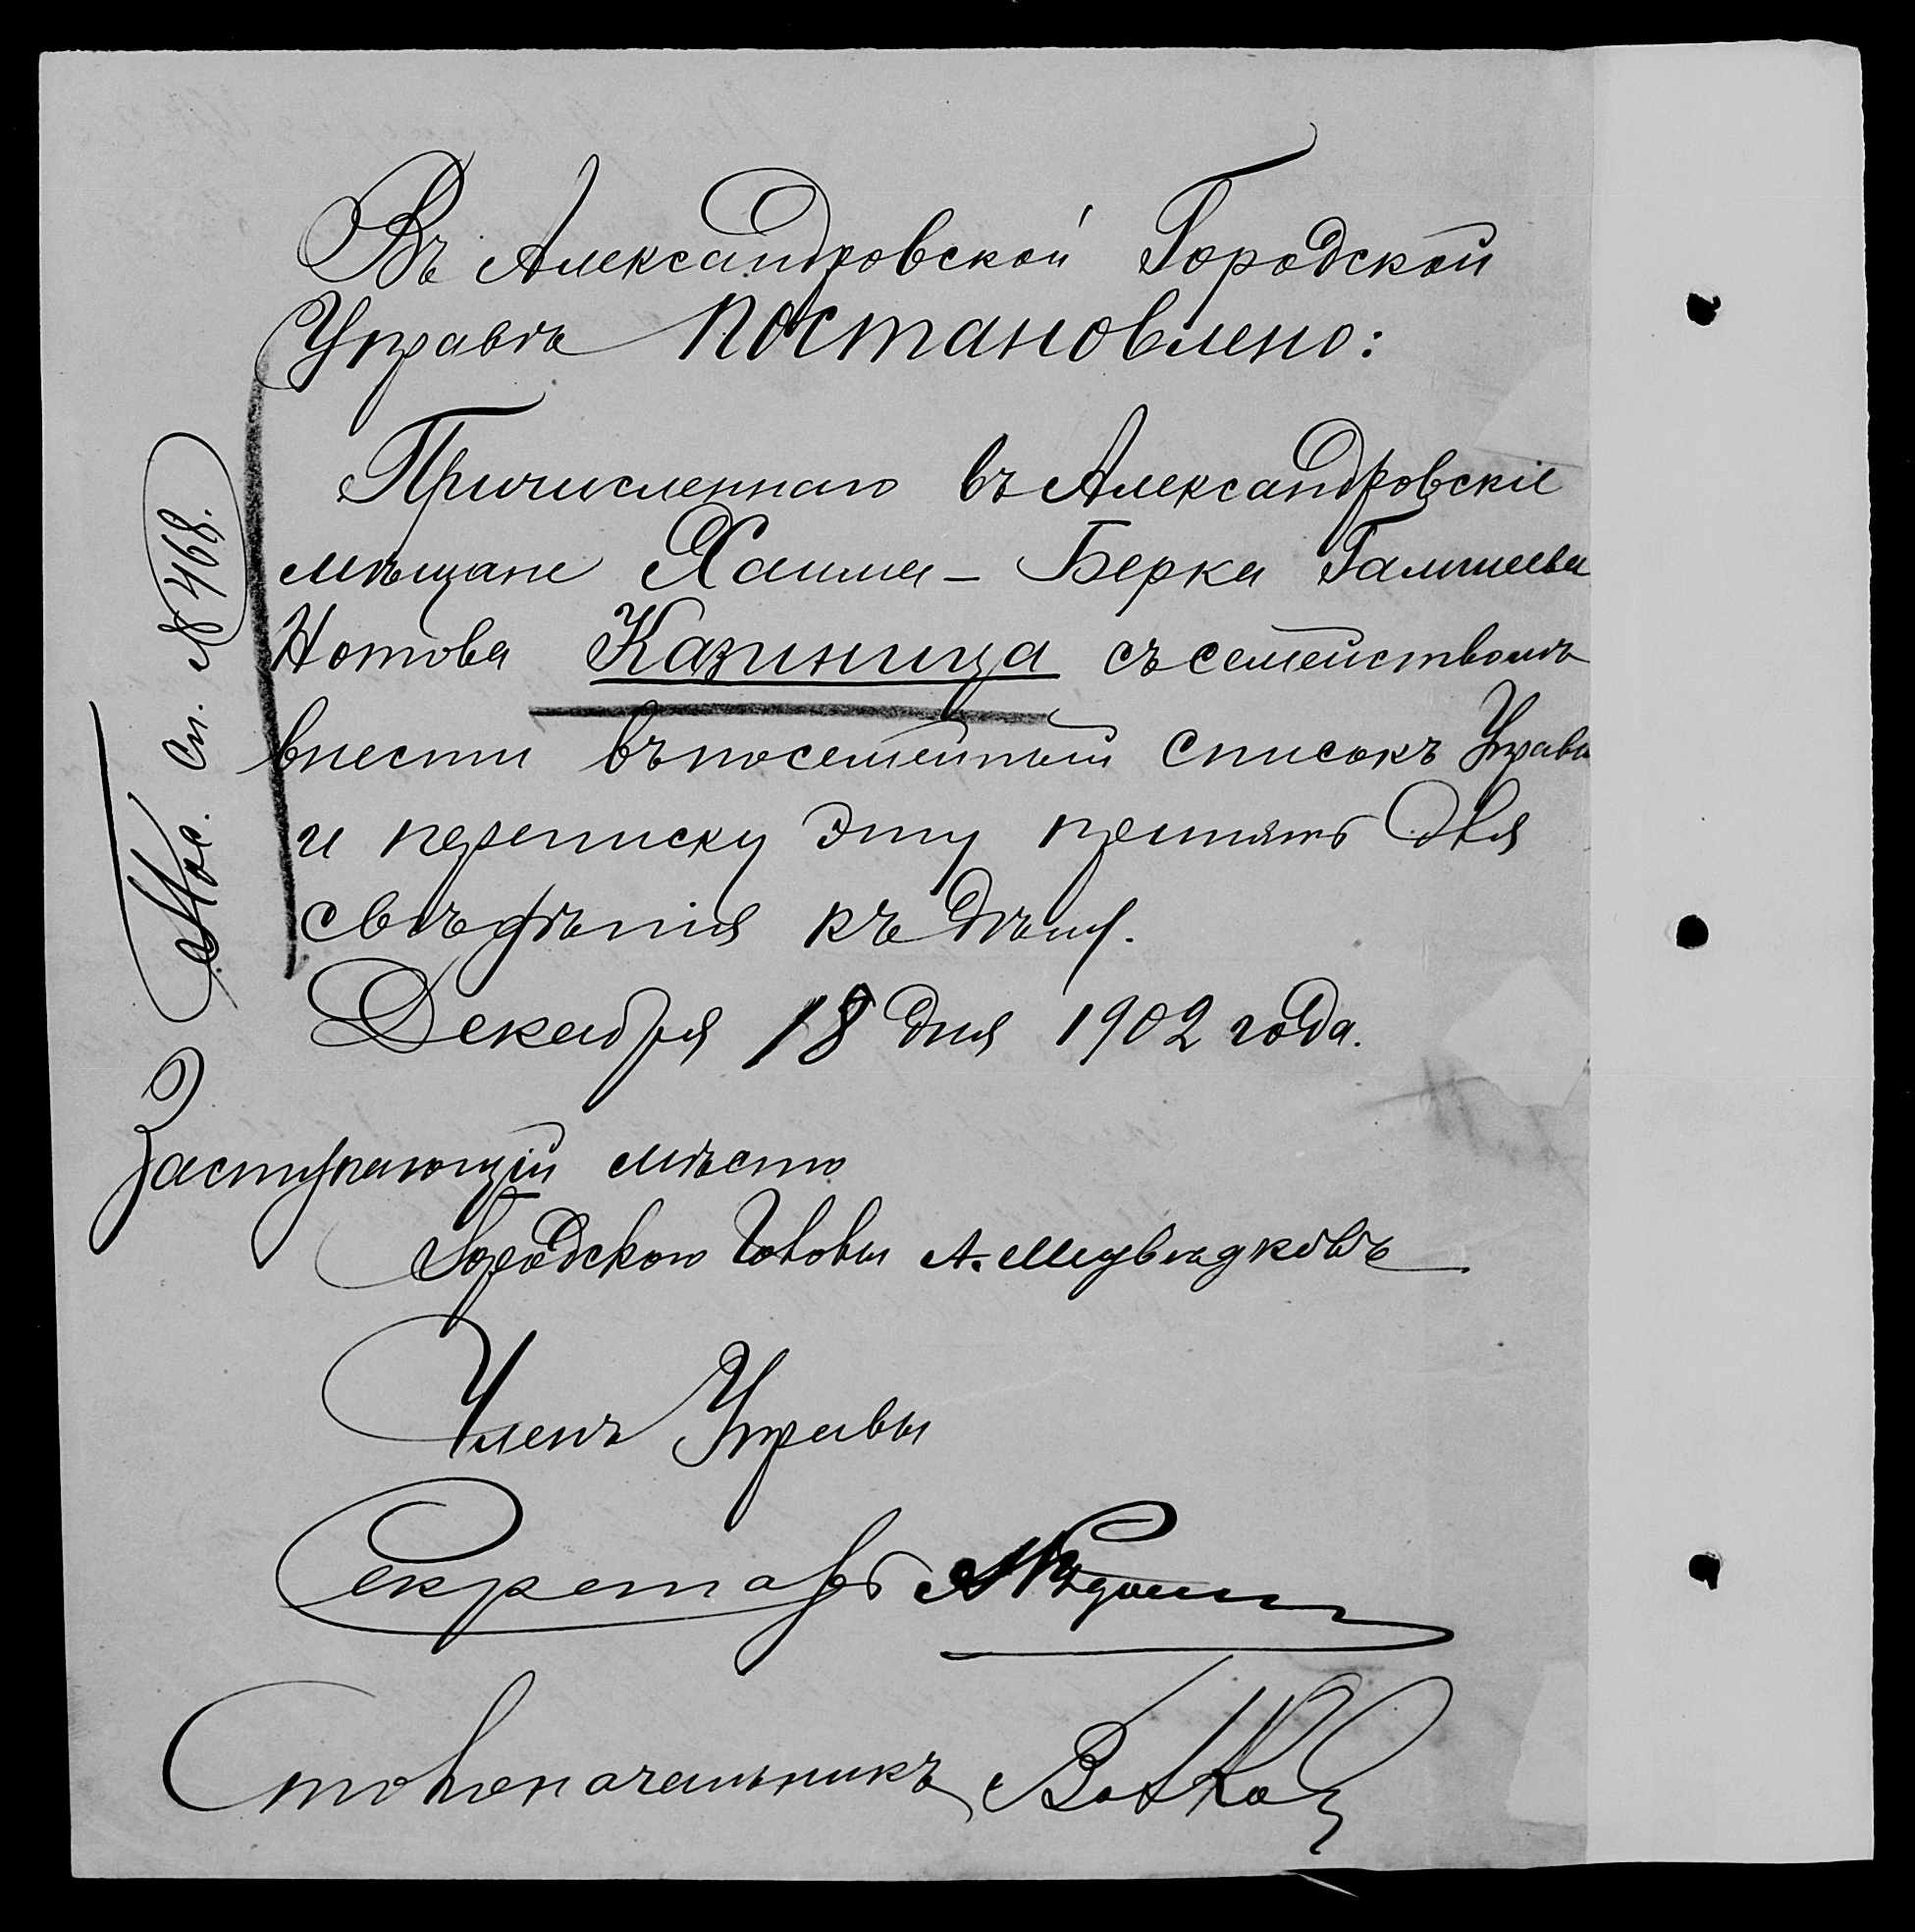 Въ Александровской Городской
Управѣ постановлено:
Причисленнаго въ Александровскіе
мѣщане Хаима-Берка
Нотова Казиница съ семействомъ
внести въ посемейный списокъ Управы
и переписку эту принять для
свѣдѣнія къ дѣлу.
Декабря 18 дня 1902 года.
Заступающій мѣсто
Городского Головы А. Медвѣдковъ
Членъ Управы
Секретарь
Столоначальникъ
Пос. сп. № 468.